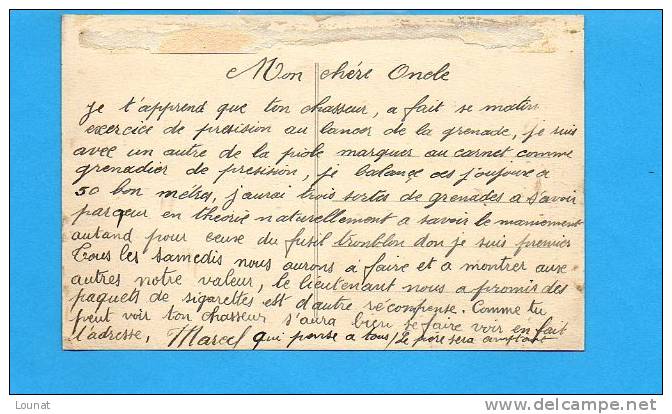 Mon chére Oncle
Je t'apprend que ton chasseur, a fait se matin
exercice de presision au lancer de la grenade, je suis
avec un autre de la piole marquer au carnet comme
grenadier de presision, je balance ces joujoux a
50 bon métres, j'aurai trois sortes de grenades a s'avoir
par cœur en théorie naturellement a savoir le maniement
autand pour ceux du fusil tromblon don je suis premier
Tous les samedis nous aurons a faire et a montrer aux
autres notre valeur, le lieutenant nous a promis des
paquets de sigarettes est d'autre récompense. Comme tu
peut voir ton chasseur s'aura bien se faire voir en fait
l'adresse. Marcel qui pense a tous / Le pere sera
Lounat
http://www.delcampe.net